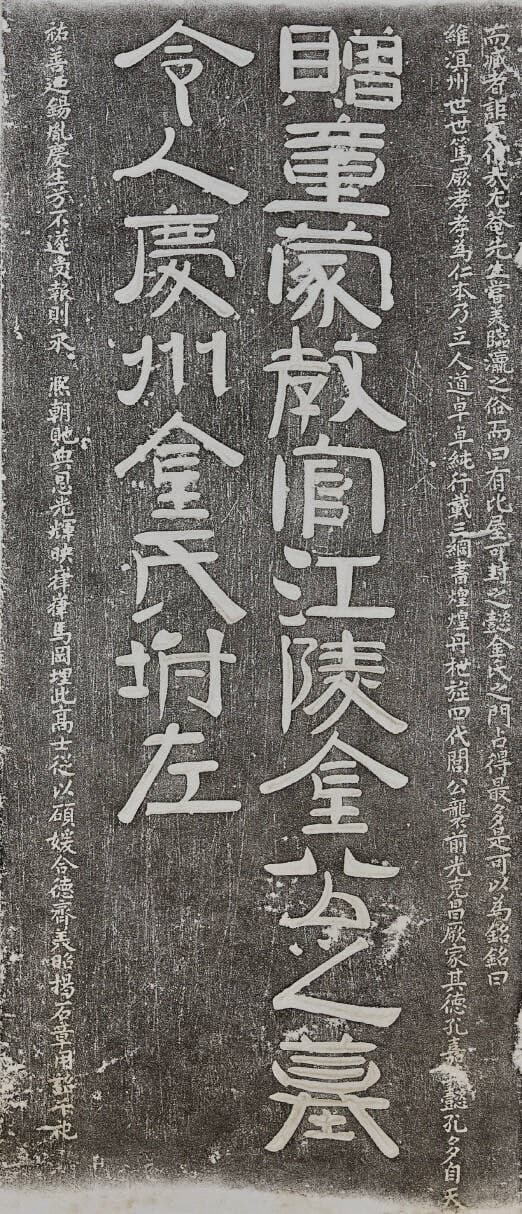 而臧者詎不信哉尤菴先生嘗美臨瀛之俗而曰有比屋可封之懿金氏之門占得最多是可以為銘銘曰
維溟州世世篤厥孝孝為仁本乃立人道卓卓純行載三綱書煌煌丹四代閭公襲前光克昌厥家其德孔嘉懿孔多自天
贈童蒙教官江陵金公之墓
令人慶州金氏坿左
祐善迺錫胤慶生不遂報則永 熙朝貤典恩光輝映葎葎馬岡埋此高士從以碩媛合德齊美昭揚石章用